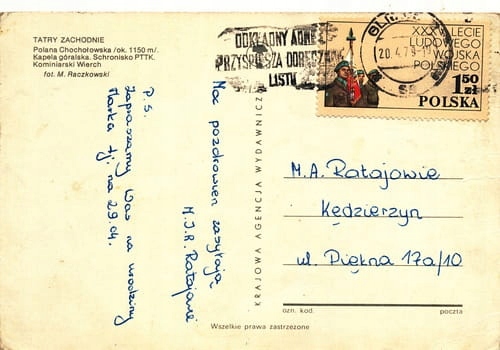 TATRY ZACHODNIE
Polana Chochołowska /ok. 1150 m/.
Kapela góralska. Schronisko PTTK.
Kominiarski Wierch
fot. M. Raczkowski
DOKŁADNY ADRES
PRZYSPIESZA DORĘCZENIE
LISTU
20.4.79
XXX LECIE
LUDOWEGO
WOJSKA
POLSKIEGO
1 50
zł
POLSKA
Moc pozdrowień zasyłają
M.J.R. Ratajowie
P.S.
Zapraszamy Was na urodziny
Marka tj na 29.04.
KRAJOWA AGENCJA WYDAWNICZA
M.A. Ratajowie
Kędzierzyn
ul. Piękna 17a/10
ozn. kod. poczta
Wszelkie prawa zastrzeżone